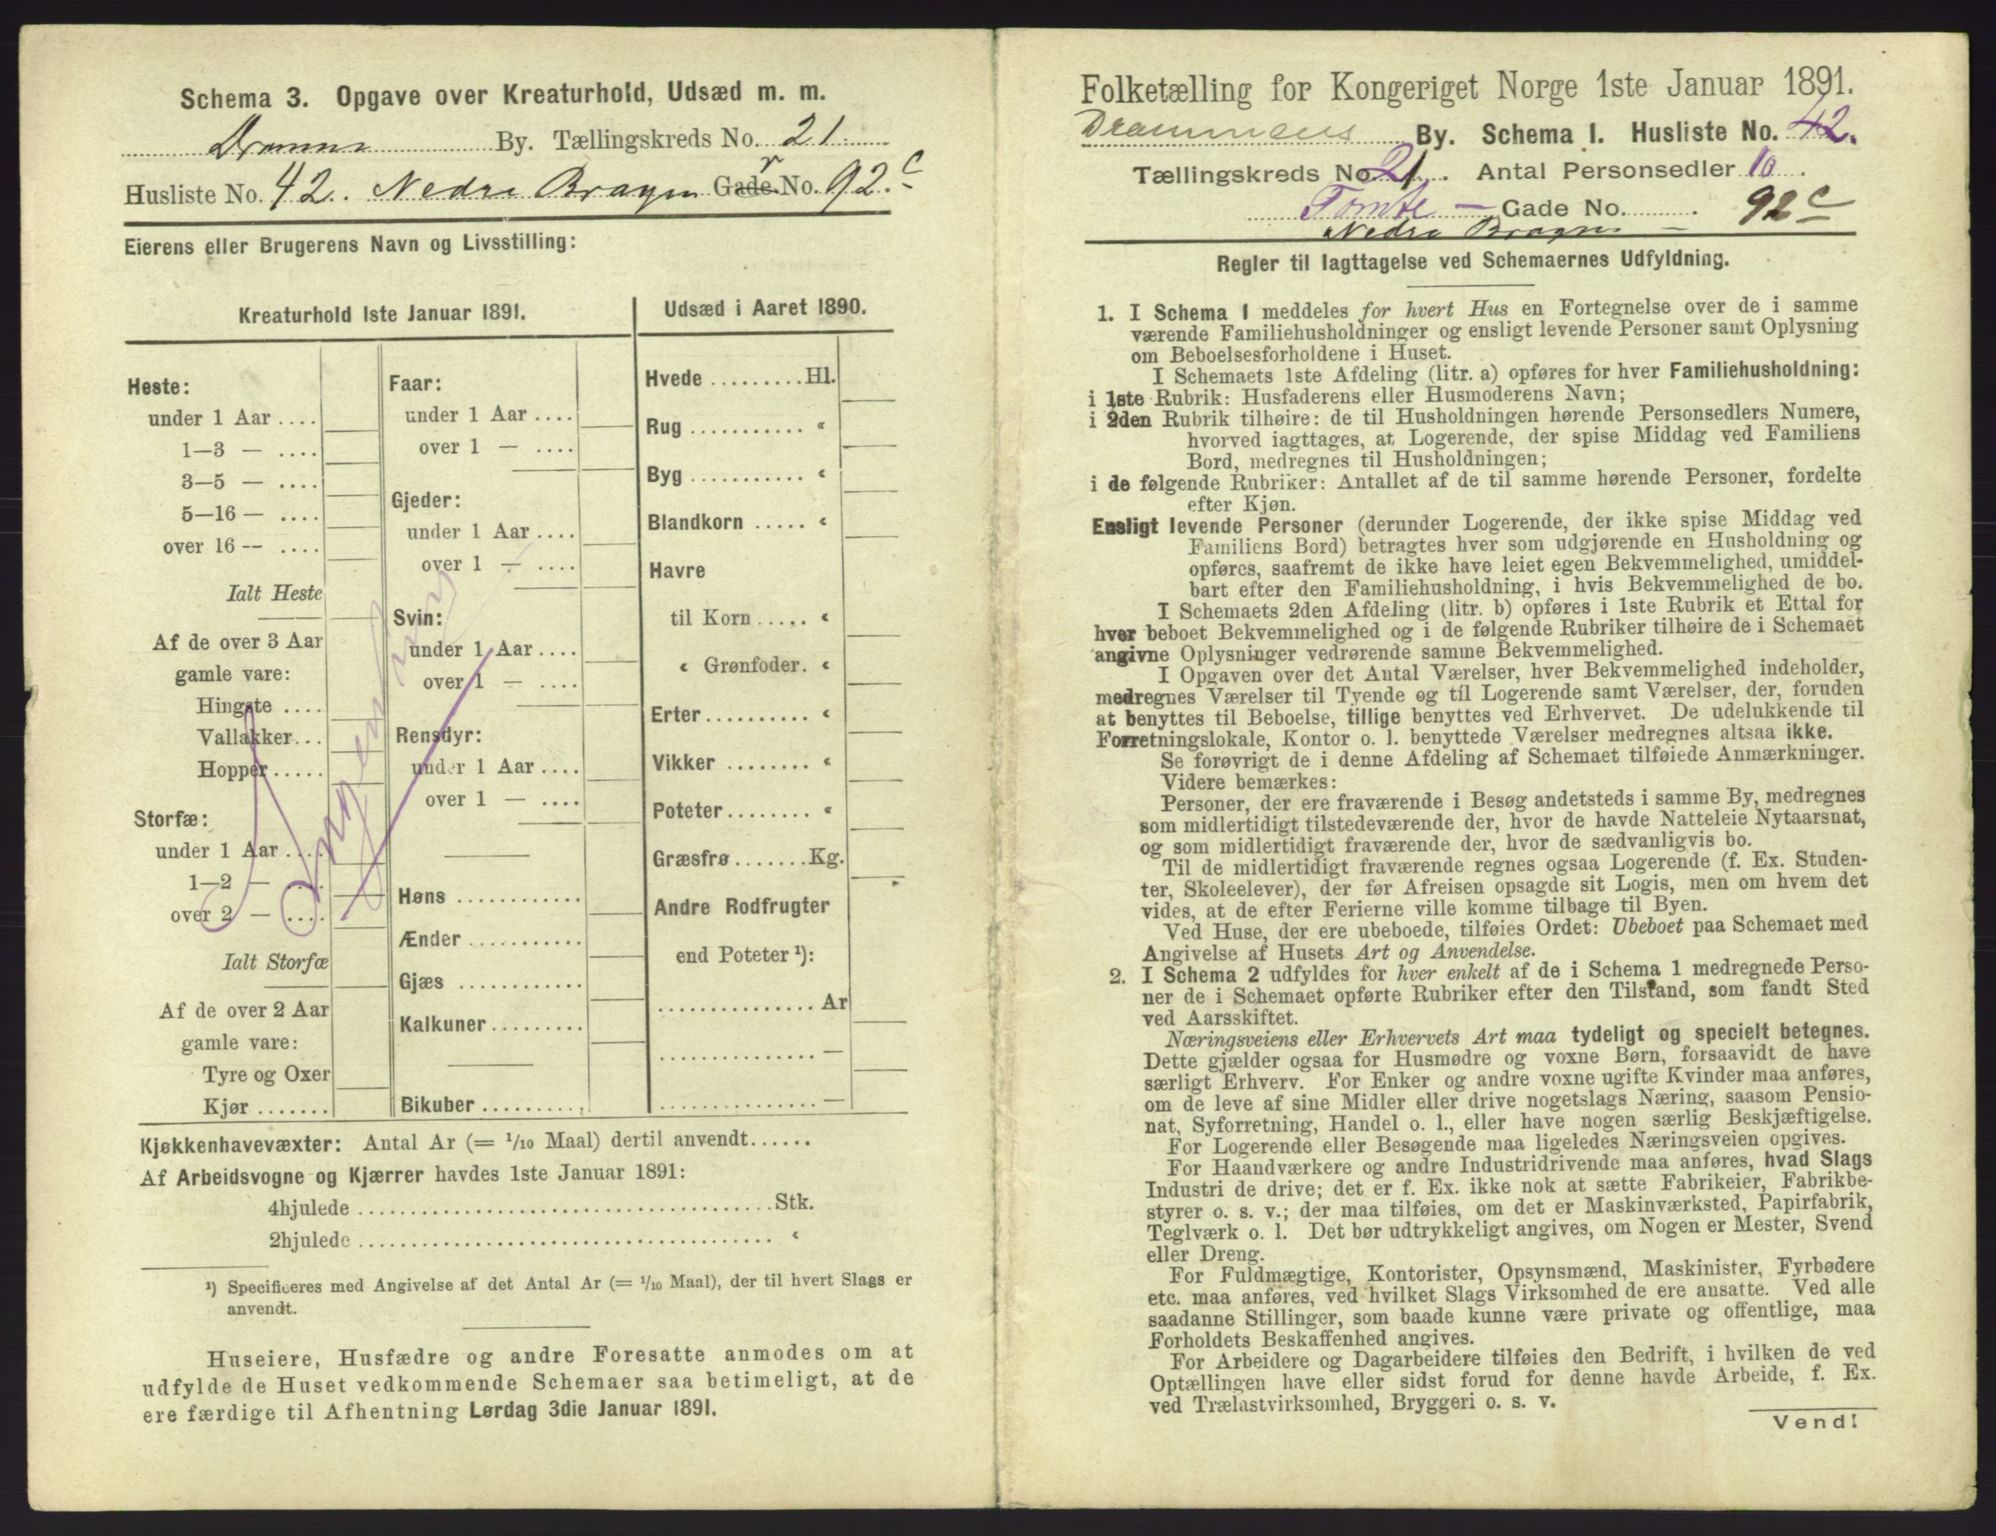 Schema 3. Opgave over Kreaturhold, Udsæd m. m.
By. Tællingskreds No. 21.
Husliste No. 42. Nedre Bragen Gade No. 92.c
Eierens eller Brugerens Navn og Livsstilling:
Kreaturhold 1ste Januar 1891.
Heste:
under 1 Aar ....
1—3 — ....
3—5 — ....
5—16 — ....
over 16 — ....
Ialt Heste
Af de over 3 Aar
gamle vare:
Hingste ....
Vallakker...
Hopper.....
Storfæ:
under 1 Aar ....
1—2 — ....
over 2 — ....
Ialt Storfæ
Af de over 2 Aar
gamle vare:
Tyre og Oxer
Kjør.......
Faar:
under 1 Aar ....
over 1 — ....
Gjeder:
under 1 Aar ....
over 1 — ....
Svin:
under 1 Aar ....
over 1 — ....
Rensdyr:
under 1 Aar ....
over 1 — ....
Høns ............
Ænder ...........
Gjæs ............
Kalkuner.........
Bikuber..........
Ingenting
Udsæd i Aaret 1890.
Hvede .........Hl.
Rug ........... «
Byg ........... «
Blandkorn ..... «
Havre
til Korn ..... «
« Grønfoder. «
Erter.......... «
Vikker ........ «
Poteter........ «
Græsfrø.......Kg.
Andre Rodfrugter
end Poteter ¹):
................ Ar
................ —
................ —
Kjøkkenhavevæxter: Antal Ar (= 1/10 Maal) dertil anvendt......
Af Arbeidsvogne og Kjærrer havdes 1ste Januar 1891:
4hjulede ........................................Stk.
2hjulede ........................................ «
¹) Specificeres med Angivelse af det Antal Ar (= 1/10 Maal), der til hvert Slags er
anvendt.
Huseiere, Husfædre og andre Foresatte anmodes om at
udfylde de Huset vedkommende Schemaer saa betimeligt, at de
ere færdige til Afhentning Lørdag 3die Januar 1891.
Folketælling for Kongeriget Norge 1ste Januar 1891.
Drammens By. Schema 1. Husliste No. 42.
Tællingskreds No. 21. Antal Personsedler 10.
Tomte — Gade No. . 92 c
Nedre Bragen —
Regler til Iagttagelse ved Schemaernes Udfyldning.
1. I Schema 1 meddeles for hvert Hus en Fortegnelse over de i samme
værende Familiehusholdninger og ensligt levende Personer samt Oplysning
om Beboelsesforholdene i Huset.
I Schemaets 1ste Afdeling (litr. a) opføres for hver Familiehusholdning:
i 1ste Rubrik: Husfaderens eller Husmoderens Navn;
i 2den Rubrik tilhøire: de til Husholdningen hørende Personsedlers Numere,
hvorved iagttages, at Logerende, der spise Middag ved Familiens
Bord, medregnes til Husholdningen;
i de følgende Rubriker: Antallet af de til samme hørende Personer, fordelte
efter Kjøn.
Ensligt levende Personer (derunder Logerende, der ikke spise Middag ved
Familiens Bord) betragtes hver som udgjørende en Husholdning og
opføres, saafremt de ikke have leiet egen Bekvemmelighed, umiddel-
bart efter den Familiehusholdning, i hvis Bekvemmelighed de bo.
I Schemaets 2den Afdeling (litr. b) opføres i 1ste Rubrik et Ettal for
hver beboet Bekvemmelighed og i de følgende Rubriker tilhøire de i Schemaet
angivne Oplysninger vedrørende samme Bekvemmelighed.
I Opgaven over det Antal Værelser, hver Bekvemmelighed indeholder,
medregnes Værelser til Tyende og til Logerende samt Værelser, der, foruden
at benyttes til Beboelse, tillige benyttes ved Erhvervet. De udelukkende til
Forretningslokale, Kontor o. l. benyttede Værelser medregnes altsaa ikke.
Se forøvrigt de i denne Afdeling af Schemaet tilføiede Anmærkninger.
Videre bemærkes:
Personer, der ere fraværende i Besøg andetsteds i samme By, medregnes
som midlertidigt tilstedeværende der, hvor de havde Natteleie Nytaarsnat,
og som midlertidigt fraværende der, hvor de sædvanligvis bo.
Til de midlertidigt fraværende regnes ogsaa Logerende (f. Ex. Studen-
ter, Skoleelever), der før Afreisen opsagde sit Logis, men om hvem det
vides, at de efter Ferierne ville komme tilbage til Byen.
Ved Huse, der ere ubeboede, tilføies Ordet: Ubeboet paa Schemaet med
Angivelse af Husets Art og Anvendelse.
2. I Schema 2 udfyldes for hver enkelt af de i Schema 1 medregnede Perso-
ner de i Schemaet opførte Rubriker efter den Tilstand, som fandt Sted
ved Aarsskiftet.
Næringsveiens eller Erhvervets Art maa tydeligt og specielt betegnes.
Dette gjælder ogsaa for Husmødre og voxne Børn, forsaavidt de have
særligt Erhverv. For Enker og andre voxne ugifte Kvinder maa anføres,
om de leve af sine Midler eller drive nogetslags Næring, saasom Pensio-
nat, Syforretning, Handel o. l., eller have nogen særlig Beskjæftigelse.
For Logerende eller Besøgende maa ligeledes Næringsveien opgives.
For Haandværkere og andre Industridrivende maa anføres, hvad Slags
Industri de drive; det er f. Ex. ikke nok at sætte Fabrikeier, Fabrikbe-
styrer o. s. v.; der maa tilføies, om det er Maskinværksted, Papirfabrik,
Teglværk o. l. Det bør udtrykkeligt angives, om Nogen er Mester, Svend
eller Dreng.
For Fuldmægtige, Kontorister, Opsynsmænd, Maskinister, Fyrbødere
etc. maa anføres, ved hvilket Slags Virksomhed de ere ansatte. Ved alle
saadanne Stillinger, som baade kunne være private og offentlige, maa
Forholdets Beskaffenhed angives.
For Arbeidere og Dagarbeidere tilføies den Bedrift, i hvilken de ved
Optællingen have eller sidst forud for denne havde Arbeide, f. Ex.
ved Trælastvirksomhed, Bryggeri o. s. v.
Vend!